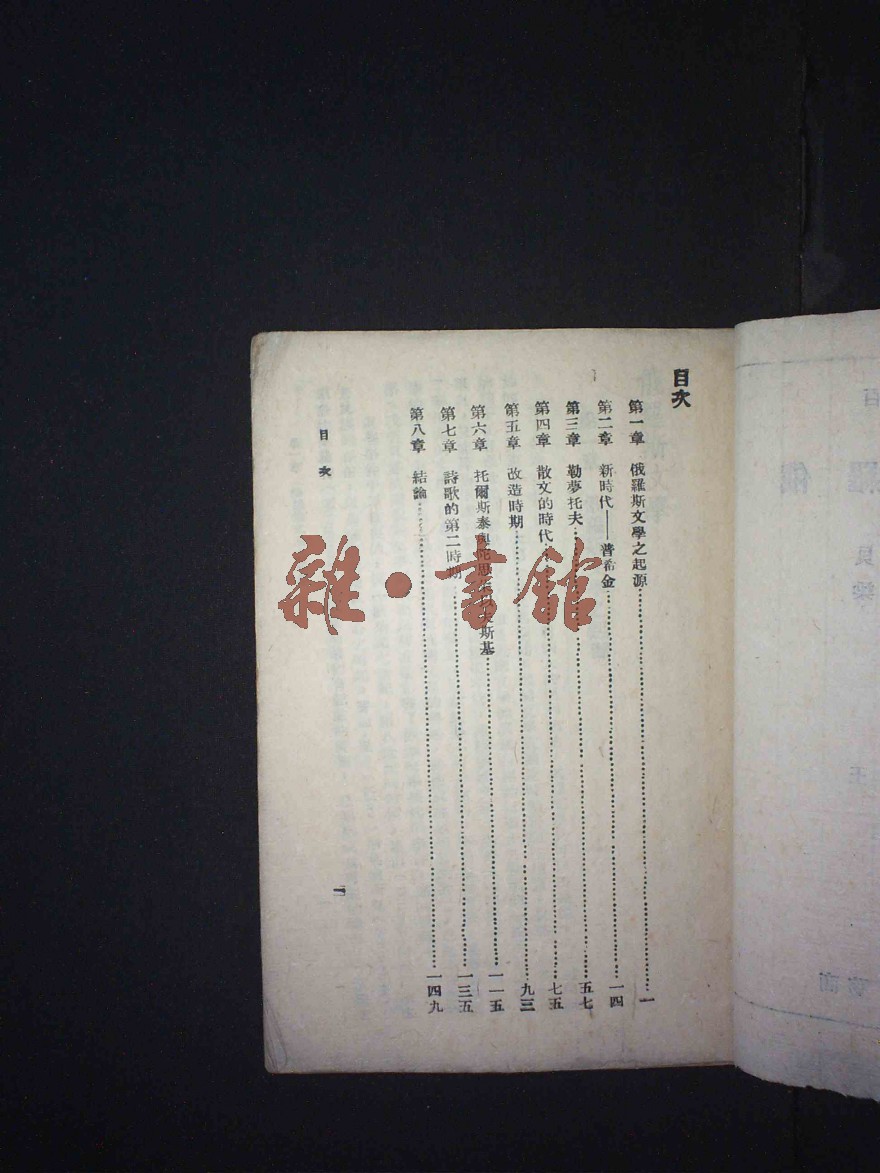 目次
第一章 俄羅斯文學之起源……一
第二章 新時代——普希金……一四
第三章 勒夢托夫……五七
第四章 散文的時代……七五
第五章 改造時期……九三
第六章 托爾斯泰與陀思朵也夫斯基……一一五
第七章 詩歌的第二時期……一三五
第八章 結論……一四九
目次
一
雜·書館